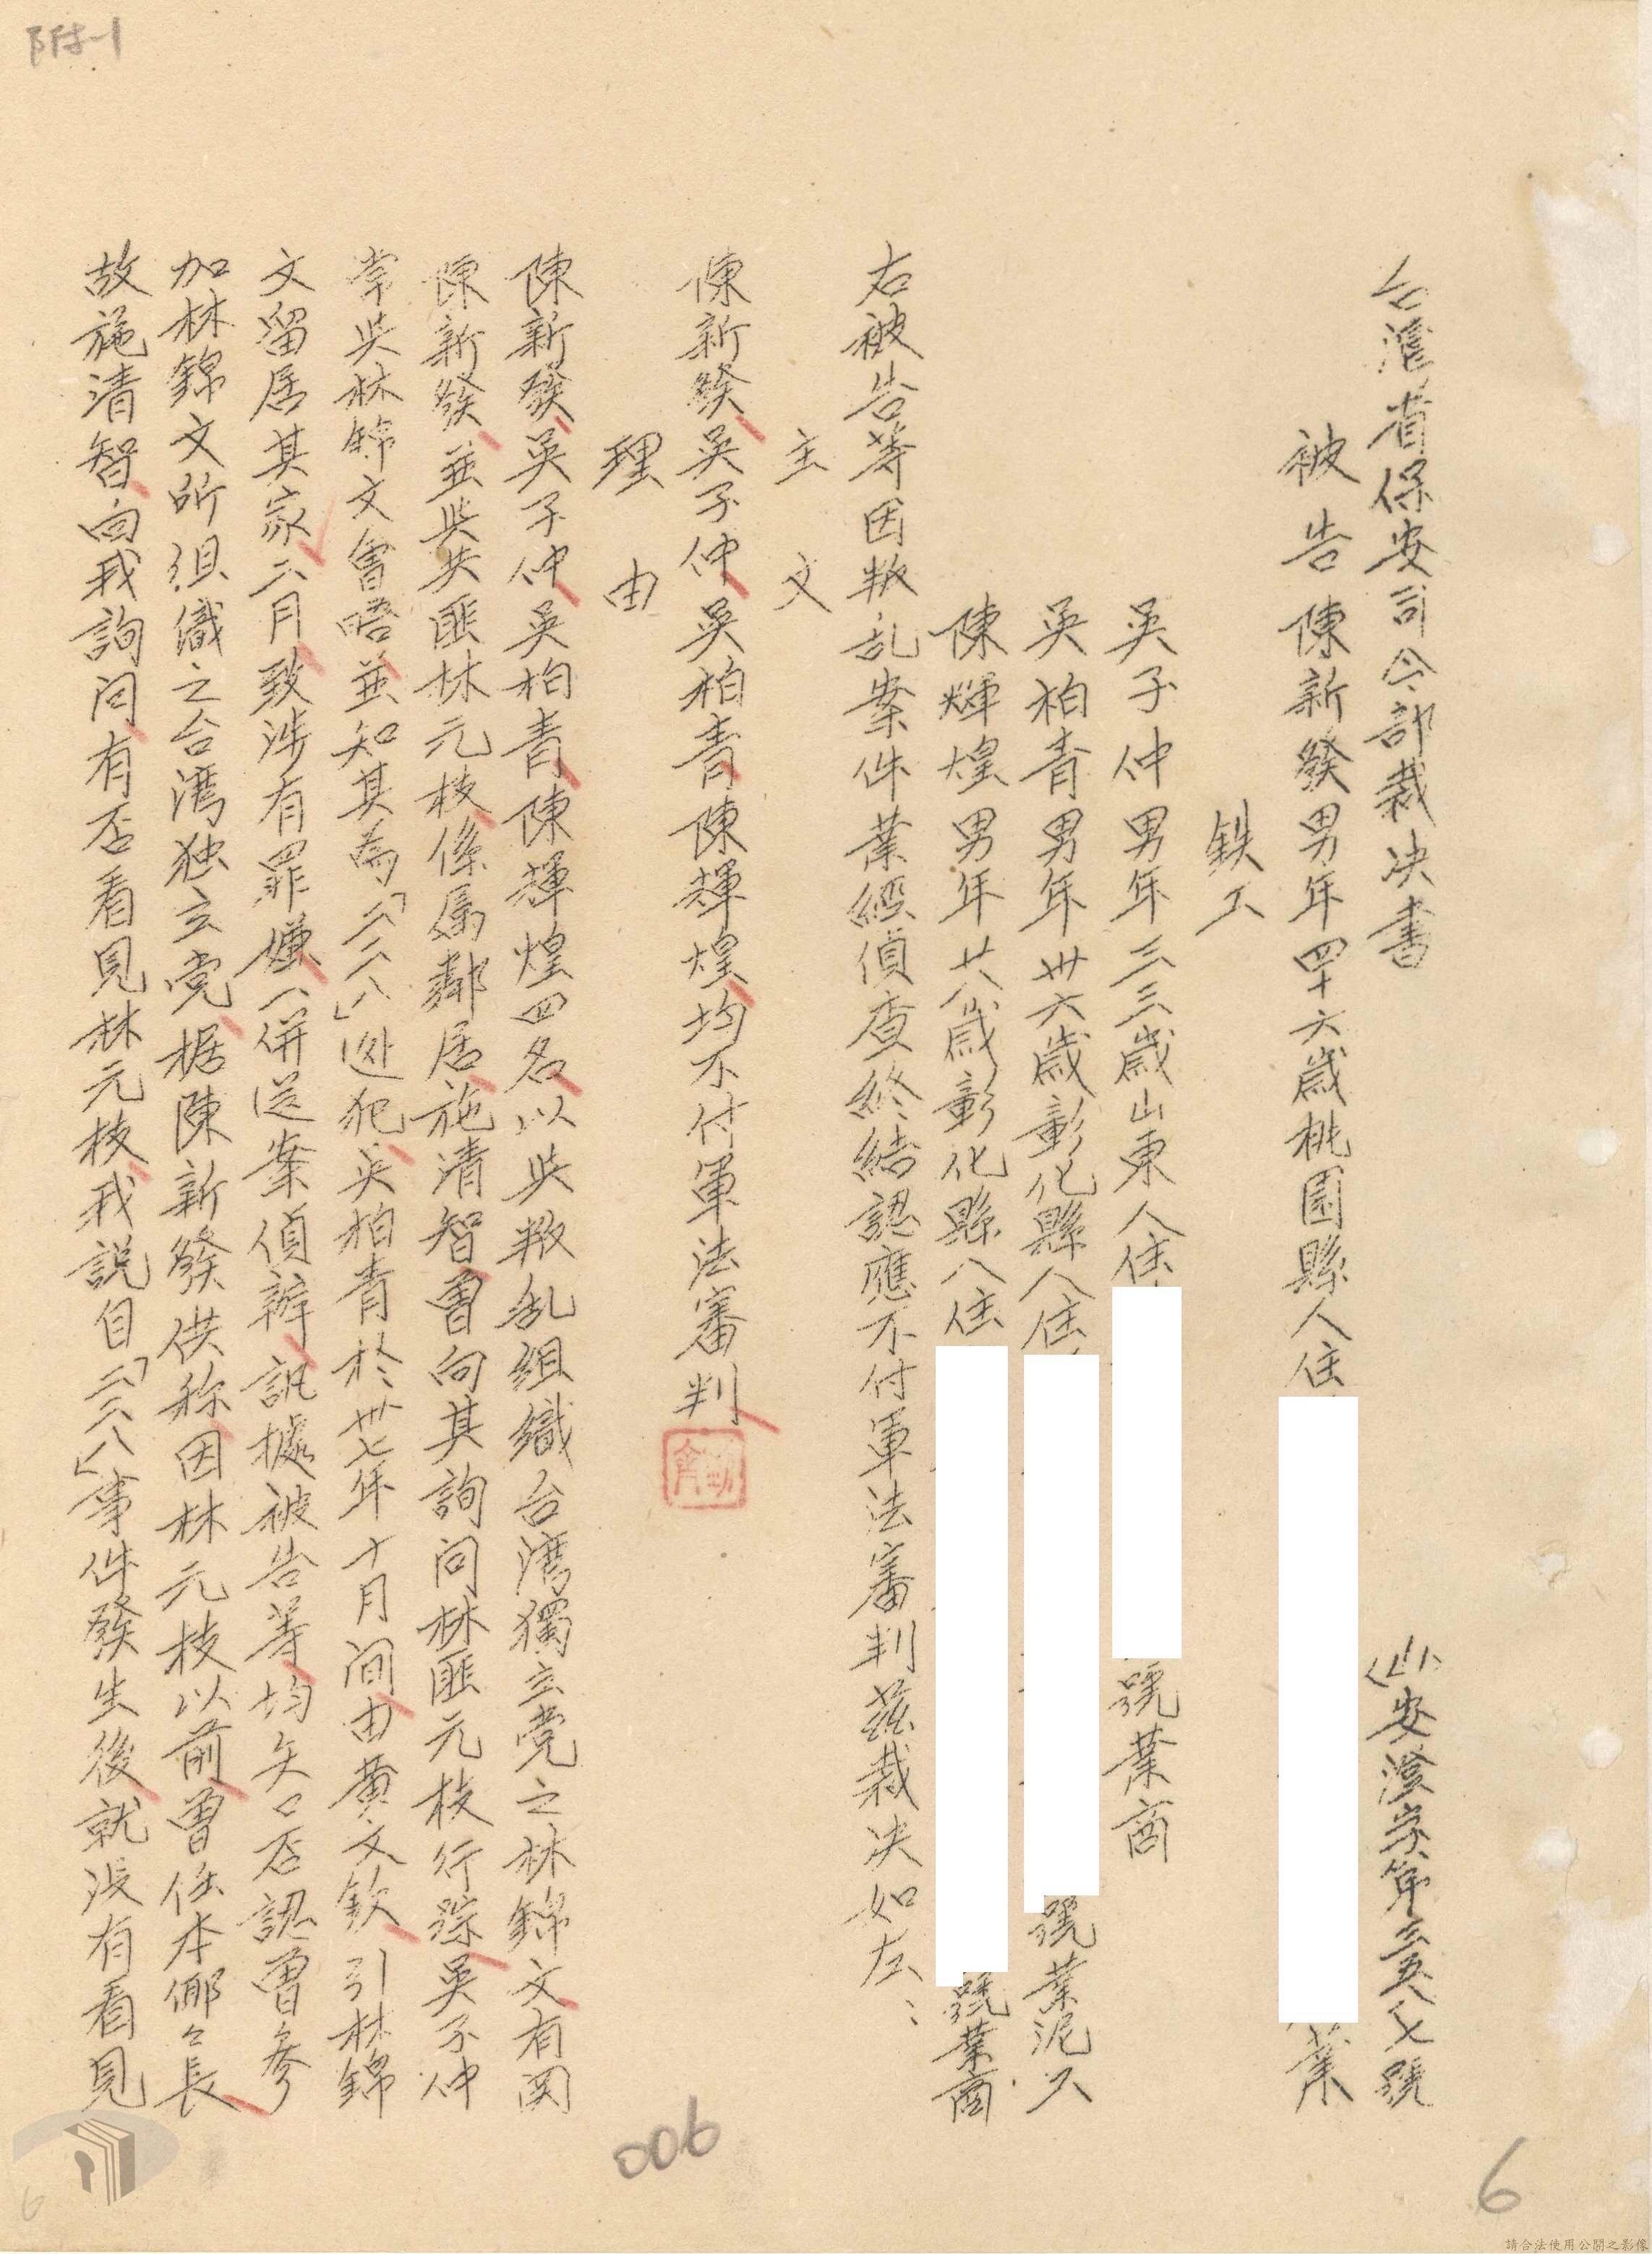 附-1
台灣省保安司令部裁决書
安澄字第三五七號
被告 陳新發男年四十六歲桃園縣人住
業
鉄工
吳子仲男年三三歲山東人住
號業商
吳柏青男年卅六歲彰化縣人住
號業泥工
陳輝煌男年廿八歲彰化縣人住
號業商
右被告等因叛乱案件業經偵查終結認應不付軍法審判茲裁决如左：
主文
陳新發吳子仲吳柏青陳輝煌均不付軍法審判
理由
陳新發吳子仲吳柏青陳輝煌四名以与叛乱組織台湾獨立党之林錦文有関
陳新發並与共匪林元枝係属鄰居施清智曾向其詢问林匪元枝行踪吳子仲
常与林錦文會唔並知其為「二二八」逃犯吳柏青於卅七年十月间由黃文欽引林錦
文留居其家六月致涉有罪嫌一併送案偵辦訊據被告等均矢口否認曾參
加林錦文所组織之台湾独立党据陳新發供称因林元枝以前曾任本鄉鄉長
故施清智向我詢问有否看見林元枝我説自「二二八」事件發生後就没有看見
006
6
6
請合法使用公開之影像